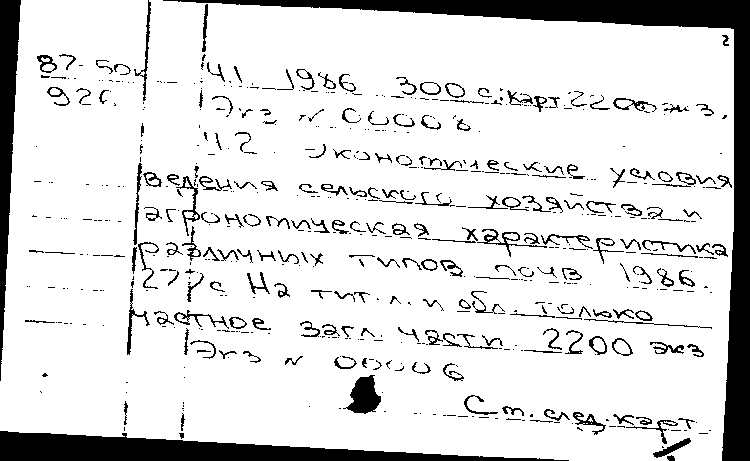 2
87-50к Ч.1. 1986 300 с.; карт 2200 экз.
92с. Экз N 00008
Ч.2. Экономические условия
ведения сельского хозяйства и
агрономическая характеристика
различных типов почв 1986.
277с На тит. л. и обл. только
частное загл. части. 2200 экз
Экз N 00006
См. след. карт